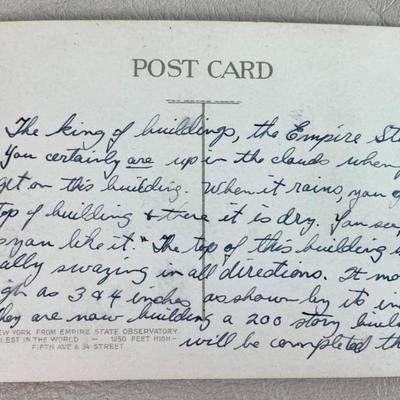 POST CARD
The king of buildings, the Empire Sta
You certainly are up in the clouds when
get on this building. When it rains, you g
top of building & there it is dry. You say
s you like it". The top of this building is
ally swazing in all directions. It mo
igh as 3 & 4 inches as shown by its in
they are now building a 200 story buil
will be completed th
NEW YORK FROM EMPIRE STATE OBSERVATORY
LEST IN THE WORLD — 1250 FEET HIGH -
FIFTH AVE & 34 STREET.